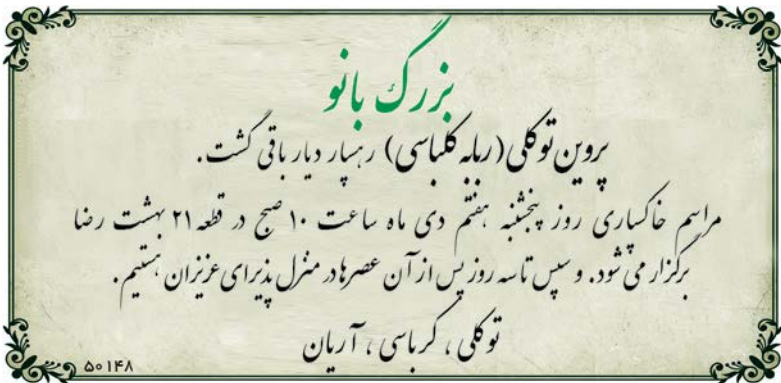 بزرگ بانو
پروین توکلی (ربابه کلباسی) رهسپار دیار باقی گشت.
مراسم خاکسپاری روز پنجشنبه هفتم دی ماه ساعت ۱۰ صبح در قطعه ۲۱ بهشت رضا
برگزار می شود. و سپس تا سه روز پس از آن عصرها در منزل پذیرای عزیزان هستیم.
توکلی ، کرباسی ، آریان
۵۰۱۴۸